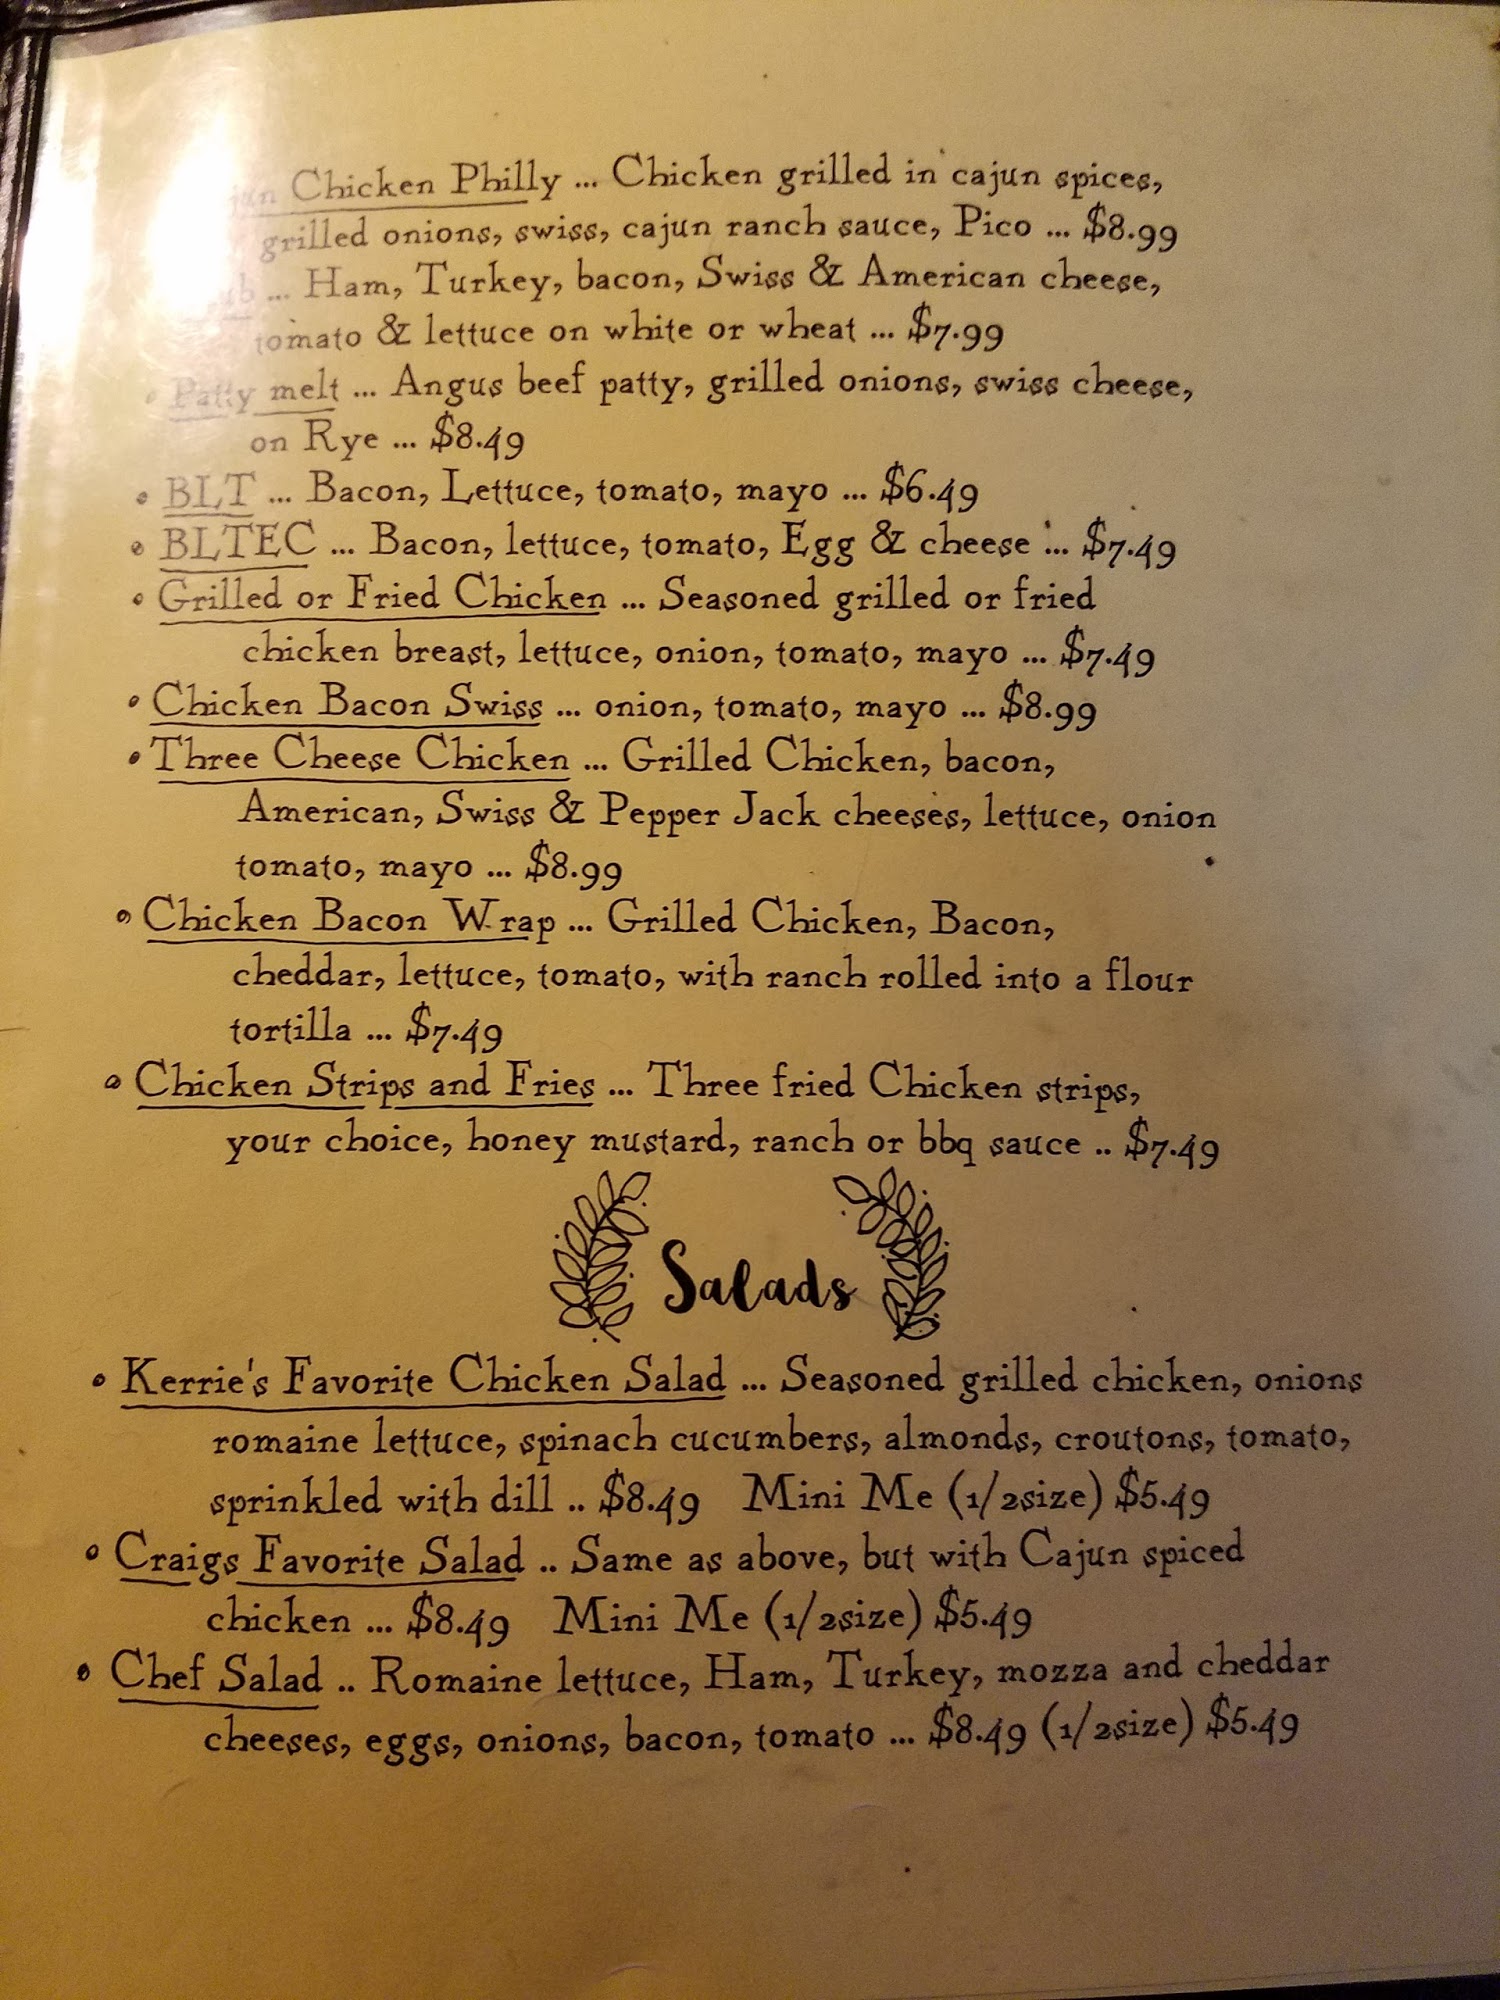 Chicken Philly ... Chicken grilled in cajun spices,
grilled onions, swiss, cajun ranch sauce, Pico ... $8.99
... Ham, Turkey, bacon, Swiss & American cheese,
tomato & lettuce on white or wheat ... $7.99
Patty melt ... Angus beef patty, grilled onions, swiss cheese,
on Rye ... $8.49
• BLT ... Bacon, Lettuce, tomato, mayo ... $6.49
• BLTEC ... Bacon, lettuce, tomato, Egg & cheese ... $7.49
• Grilled or Fried Chicken ... Seasoned grilled or fried
chicken breast, lettuce, onion, tomato, mayo ... $7.49
• Chicken Bacon Swiss ... onion, tomato, mayo ... $8.99
• Three Cheese Chicken ... Grilled Chicken, bacon,
American, Swiss & Pepper Jack cheeses, lettuce, onion
tomato, mayo ... $8.99
• Chicken Bacon Wrap ... Grilled Chicken, Bacon,
cheddar, lettuce, tomato, with ranch rolled into a flour
tortilla ... $7.49
• Chicken Strips and Fries ... Three fried Chicken strips,
your choice, honey mustard, ranch or bbq sauce .. $7.49
Salads
• Kerrie's Favorite Chicken Salad ... Seasoned grilled chicken, onions
romaine lettuce, spinach cucumbers, almonds, croutons, tomato,
sprinkled with dill .. $8.49 Mini Me (1/2size) $5.49
• Craigs Favorite Salad .. Same as above, but with Cajun spiced
chicken ... $8.49 Mini Me (1/2size) $5.49
• Chef Salad .. Romaine lettuce, Ham, Turkey, mozza and cheddar
cheeses, eggs, onions, bacon, tomato ... $8.49 (1/2size) $5.49